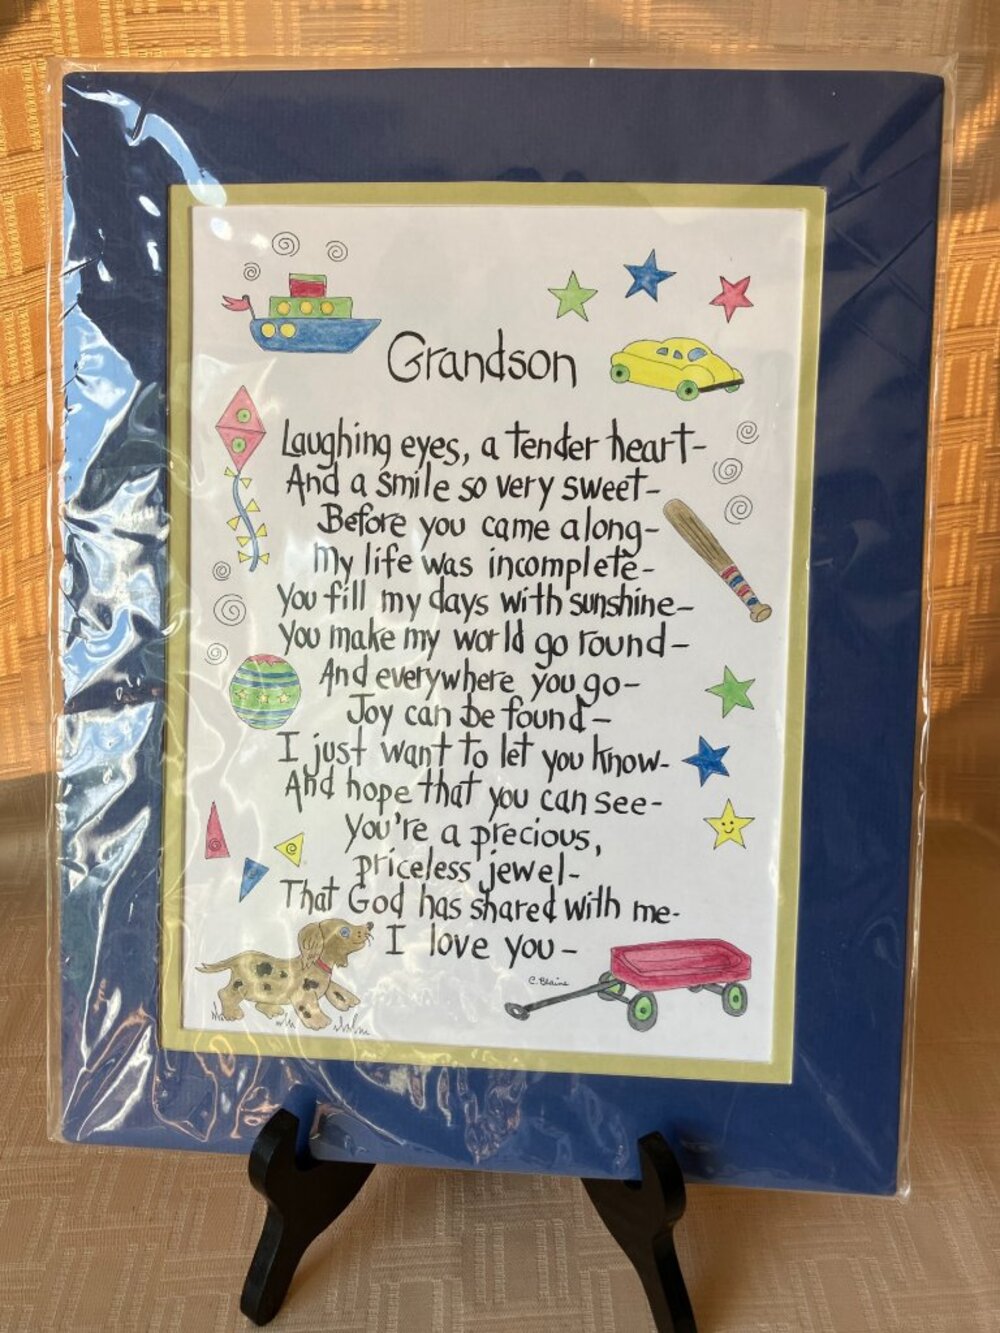 Grandson
Laughing eyes, a tender heart-
And a smile so very sweet-
Before you came along-
My life was incomplete-
You fill my days with sunshine-
You make my world go round-
And everywhere you go-
Joy can be found-
I just want to let you know-
And hope that you can see-
You're a precious,
priceless jewel-
That God has shared with me-
I love you-
C. Blaine